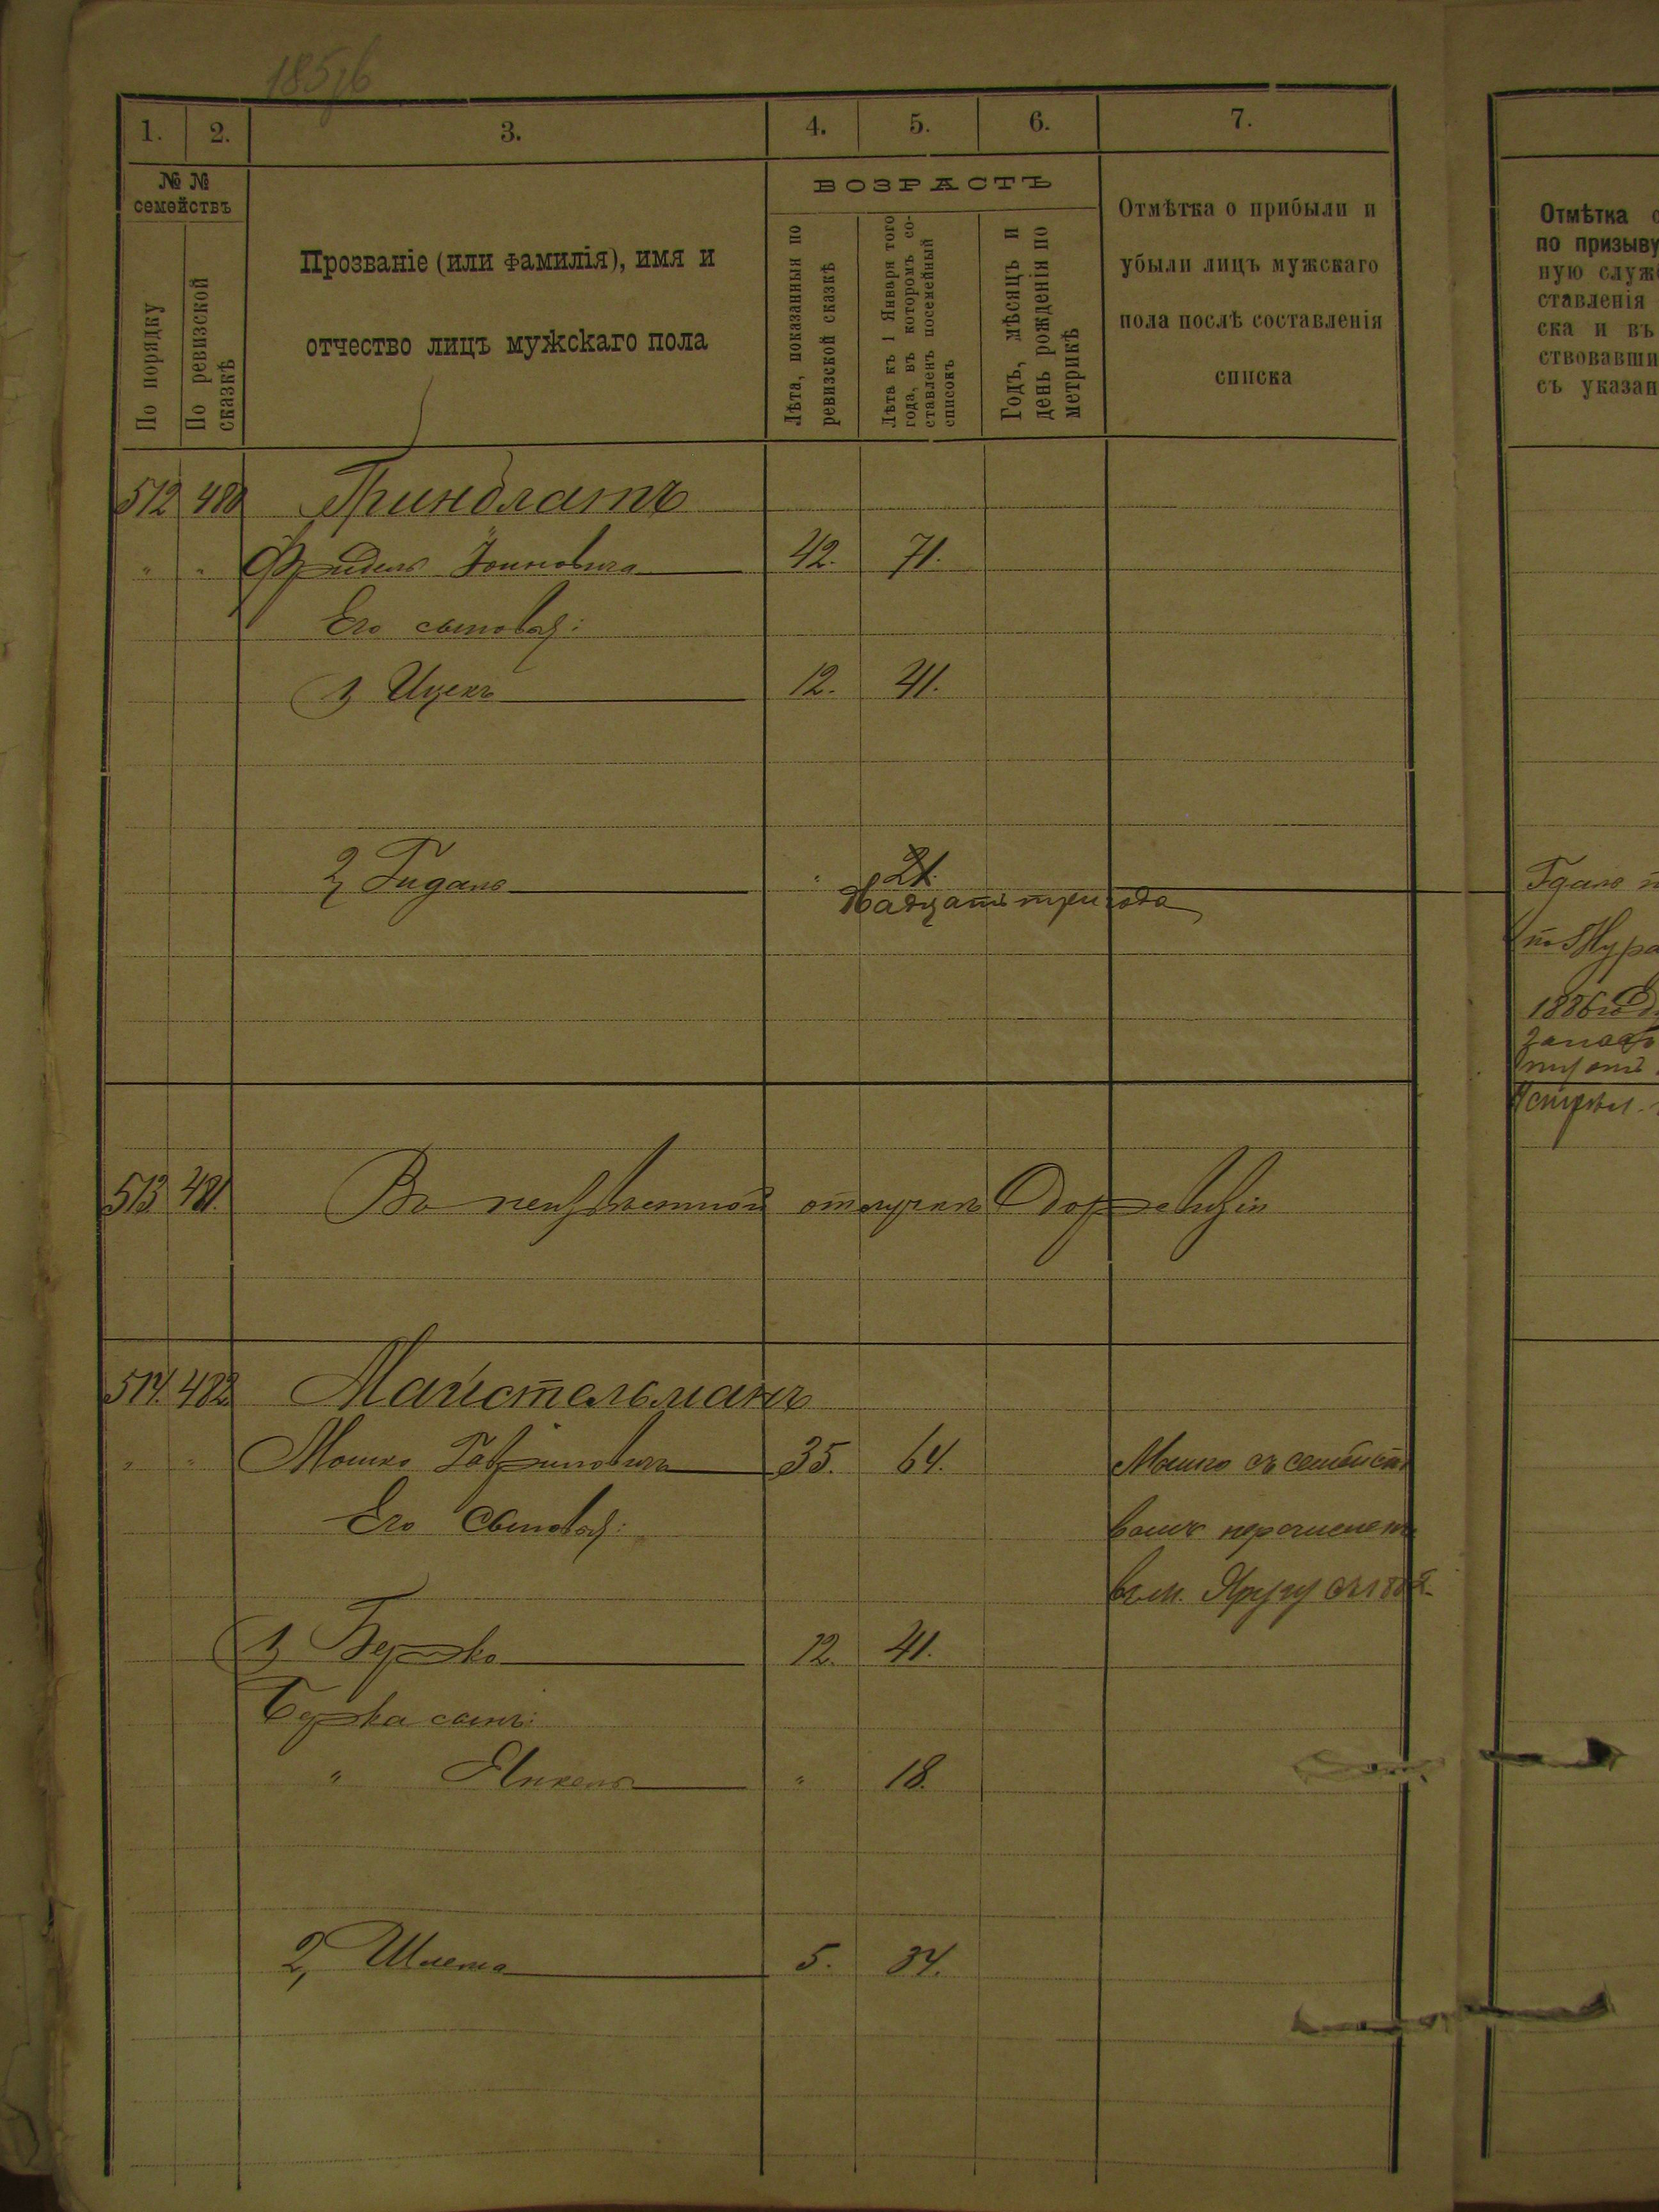 1. 2. 3. 4. 5. 6. 7.
№ №
семействъ
По порядку
По ревизской сказкѣ
Прозваніе (или фамилія), имя и
отчество лицъ мужскаго пола
ВОЗРАСТЪ
Лѣта, показанныя по
ревизской сказкѣ
Лѣта къ 1 Января того
года, въ которомъ со-
ставленъ посемейный
списокъ
Годъ, мѣсяцъ и
день рожденія по
метрикѣ
Отмѣтка о прибыли и
убыли лицъ мужскаго
пола послѣ составленія
списка
Отмѣтка
по призыву
ную служ
ставленія
ска и въ
ствовавши
съ указан
512 480 Гринблатъ
" " Фридель 42. 71.
Его сыновья:
1, Ицекъ 12. 41.
2, Гидаль " 21.
Надцать три года
1886 году
513 481. Въ неизвѣстной отлучкѣ до ревизіи
514. 482 Майстельманъ
" " Мошко Гавриловичъ 35. 64. Мошко съ семейст
вомъ перечисленъ
Его сыновья:
въ м. Яругу
1, Берко 12. 41.
Берка сынъ:
" Янкель " 18.
2, Шлема 5. 34.